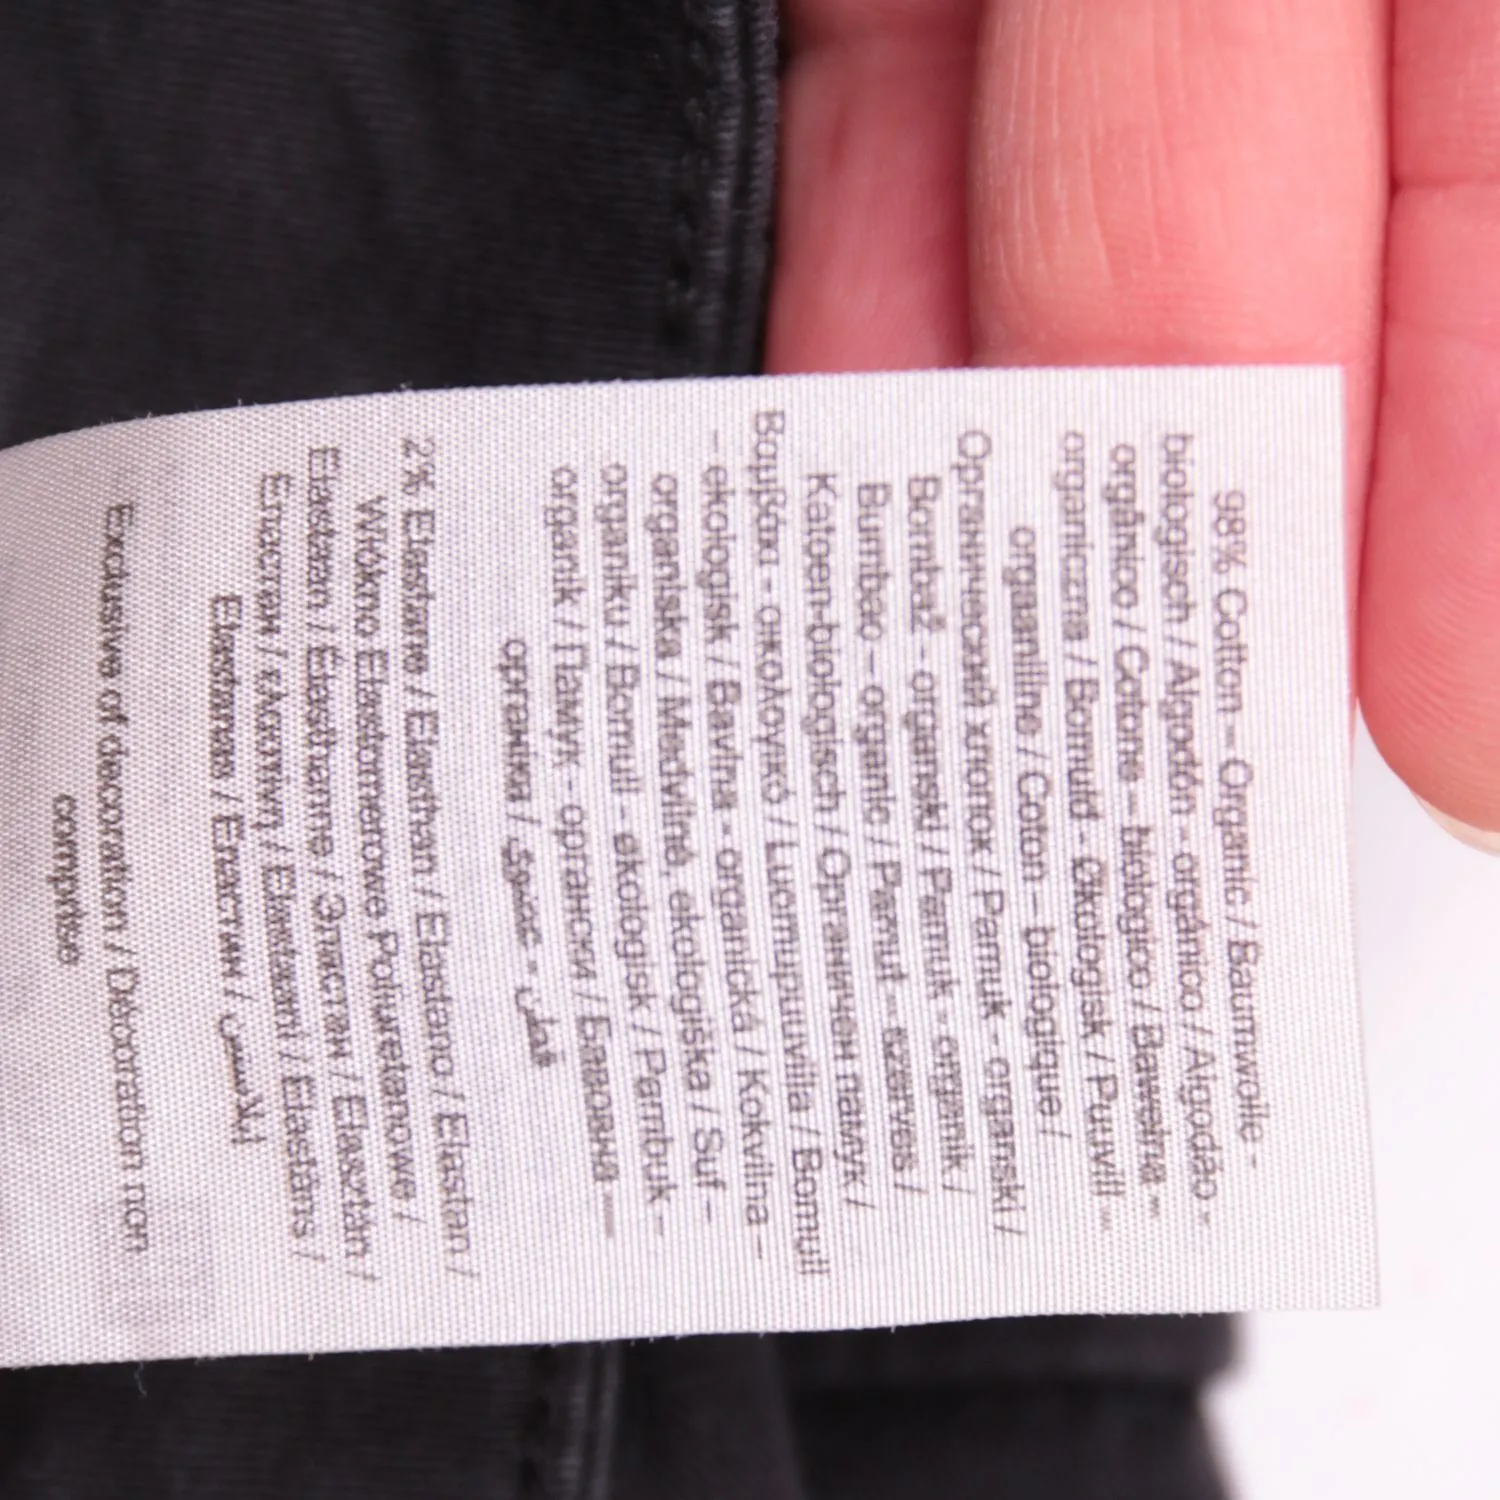 98% Cotton – Organic / Baumwolle -
biologisch / Algodón - orgánico / Algodão -
orgânico / Cotone – biologico / Bawełna –
organiczna / Bomuld - Økologisk / Puuvill –
orgaaniline / Coton – biologique /
Органический хлопок / Pamuk - organski /
Bombaž - organski / Pamuk - organik /
Bumbac – organic / Pamut – szerves /
Katoen-biologisch / Органичен памук /
Βαμβάκι - οικολογικό / Luomupuuvilla / Bomull
– ekologisk / Bavlna - organická / Kokvilna –
organiska / Medvilnė, ekologiška / Suf –
organiku / Bomull - økologisk / Pambuk –
organik / Памук - органски / Бавовна –
органіка / قطن - عضوي
2% Elastane / Elasthan / Elastano / Elastan /
Włókno Elastomerowe Poliuretanowe /
Elastaan / Élasthanne / Эластан / Elasztán /
Еластан / ελαστίνη / Elastaani / Elastāns /
Elastanas / Еластин / إيلاستين
Exclusive of decoration / Décoration non
comprise